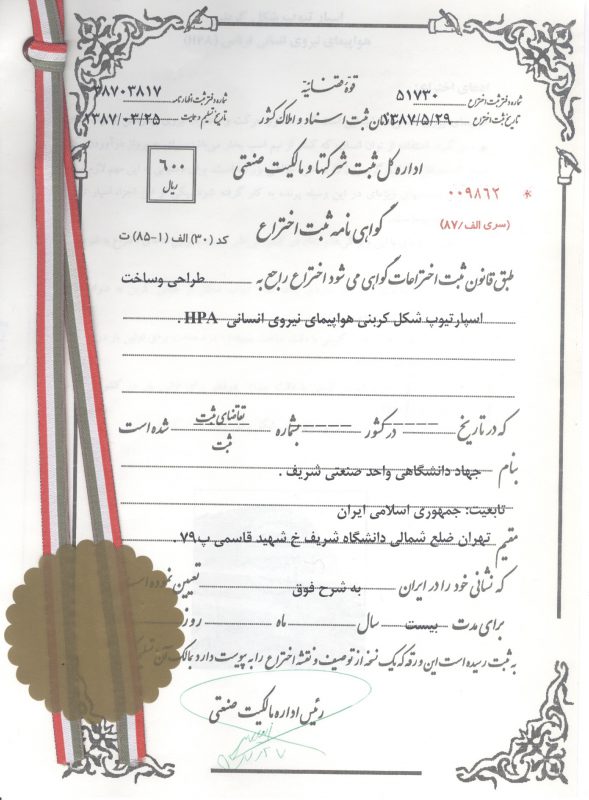 قوه قضائیه
شماره دفتر ثبت اختراع ۵۱۷۳۰
شماره دفتر ثبت اظهارنامه ۳۸۷۰۳۸۱۷
تاریخ ثبت اختراع ۱۳۸۷/۵/۲۹
ثبت اسناد و املاک کشور
تاریخ تسلیم ۱۳۸۷/۰۳/۲۵
اداره کل ثبت شرکتها و مالکیت صنعتی
۶۰۰
ریال
* ۰۰۹۸۶۲
(سری الف/۸۷)
گواهی نامه ثبت اختراع
کد (۳۰) الف (۱-۸۵) ت
طبق قانون ثبت اختراعات گواهی می شود اختراع راجع به طراحی وساخت
اسپار تیوپ شکل کربنی هواپیمای نیروی انسانی HPA .
که در تاریخ ----- در کشور ----- بشماره ----- تقاضای ثبت شده است
ثبت
بنام جهاد دانشگاهی واحد صنعتی شریف .
تابعیت: جمهوری اسلامی ایران
مقیم تهران ضلع شمالی دانشگاه شریف خ شهید قاسمی پ۷۹.
که نشانی خود را در ایران به شرح فوق تعیین نموده
برای مدت بیست سال ماه روز
به ثبت رسیده است این ورقه که یک نسخه از توصیف و نقشه اختراع را به پیوست دارد بمالک آن
رئیس اداره مالکیت صنعتی